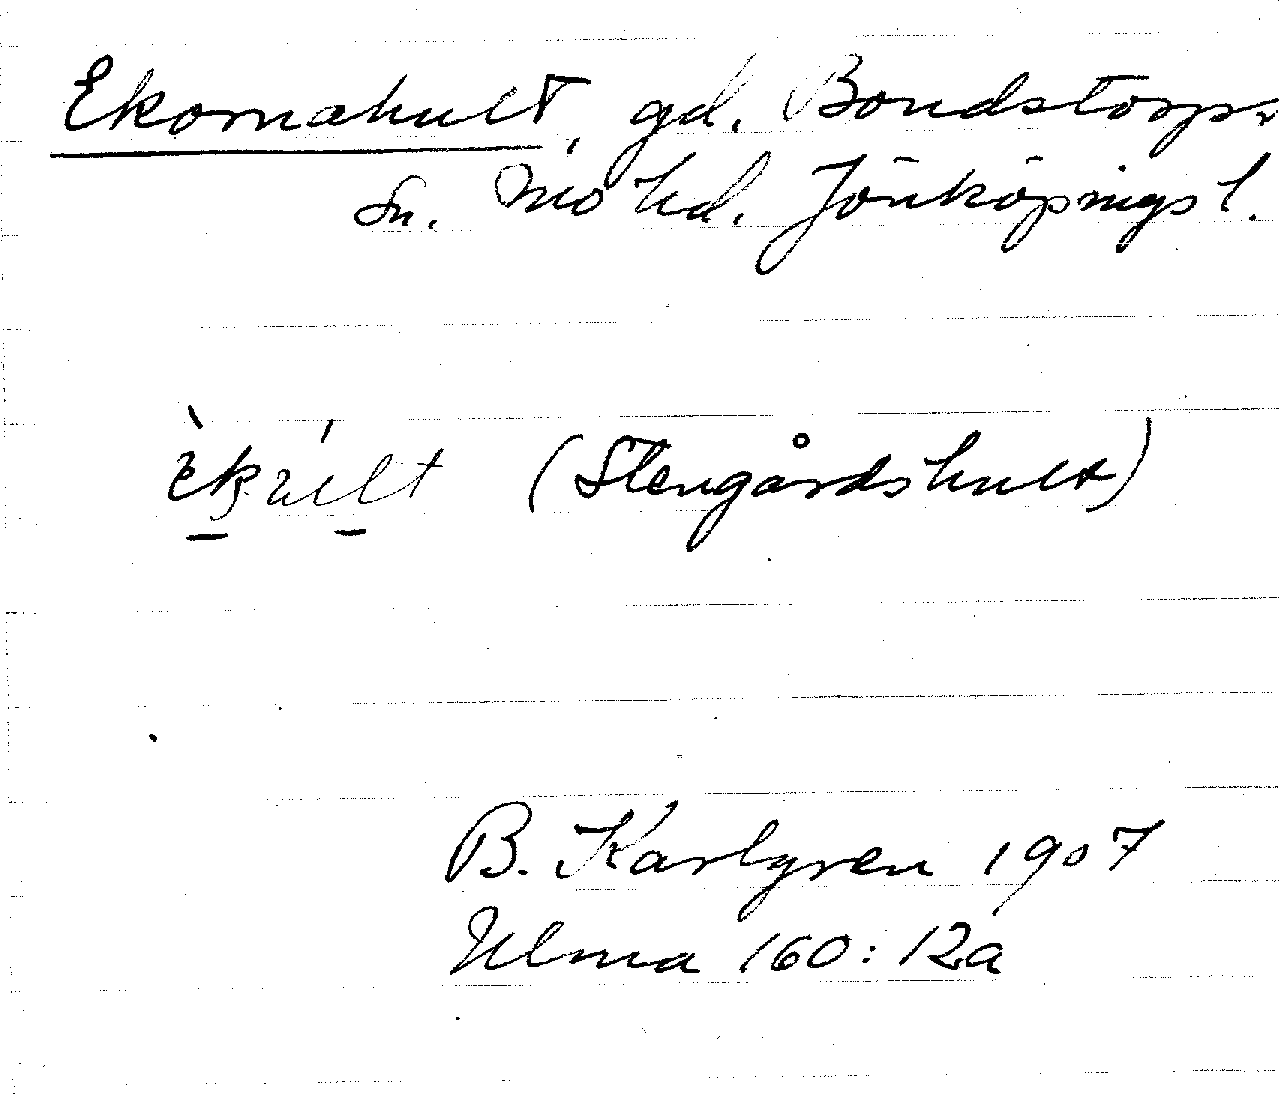 Ekornahult, gd. Bondstorps
sn. Mo hd. Jönköpings l.
(Stengårdshult)
B. Karlgren 1907
Ulma 160:12a